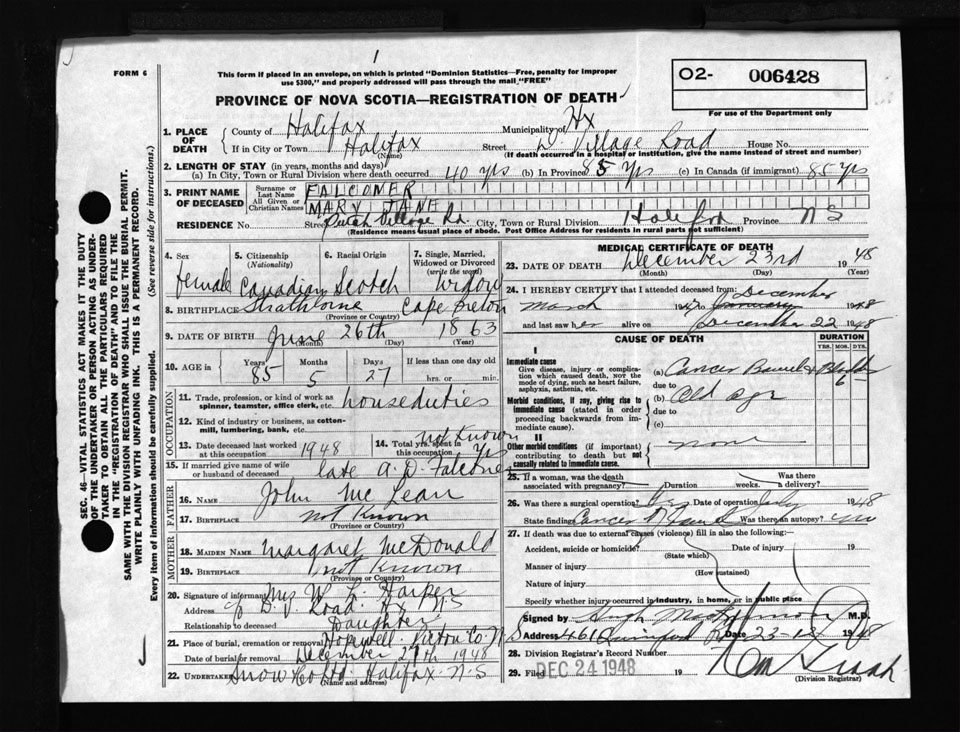 1
FORM 6
This form if placed in an envelope, on which is printed "Dominion Statistics—Free, penalty for improper use $300," and properly addressed will pass through the mail "FREE"
O2- 006428
PROVINCE OF NOVA SCOTIA—REGISTRATION OF DEATH
For use of the Department only
1. PLACE OF DEATH
County of Halifax Municipality of Hx
If in City or Town Halifax Street D. Village Road House No.
(Name) (If death occurred in a hospital or institution, give the name instead of street and number)
2. LENGTH OF STAY (in years, months and days)
(a) In City, Town or Rural Division where death occurred 40 yrs (b) In Province 85 yrs (c) In Canada (if immigrant) 85 yrs
3. PRINT NAME OF DECEASED
Surname or Last Name FALCONER
All Given or Christian Names MARY JANE
RESIDENCE No. Street Dutch Village Rd. City, Town or Rural Division Halifax Province N S
(Residence means usual place of abode. Post Office Address for residents in rural parts not sufficient)
4. Sex
female
5. Citizenship (Nationality)
Canadian
6. Racial Origin
Scotch
7. Single, Married, Widowed or Divorced (write the word)
Widow
8. BIRTHPLACE Strathlorne Cape Breton
(Province or Country)
9. DATE OF BIRTH June 26th 1863
(Month) (Day) (Year)
10. AGE in Years 85 Months 5 Days 27 If less than one day old
hrs. or min.
OCCUPATION
11. Trade, profession, or kind of work as spinner, teamster, office clerk, etc. houseduties
12. Kind of industry or business, as cotton-mill, lumbering, bank, etc.
13. Date deceased last worked at this occupation 1948
14. Total yrs. spent in this occupation not Known yrs
15. If married give name of wife or husband of deceased late A. D. Falconer
FATHER
16. Name John Mc Lean
17. Birthplace not Known
(Province or Country)
MOTHER
18. Maiden Name Margaret McDonald
19. Birthplace not Known
(Province or Country)
20. Signature of informant Mrs W. L. Harper
Address D. V. Road. Hx N S
Relationship to deceased Daughter
21. Place of burial, cremation or removal Hopewell Pictou Co. N S
Date of burial or removal December 27th 1948
22. Undertaker Snow Co Ltd. Halifax N-S
(Name and address)
MEDICAL CERTIFICATE OF DEATH
23. DATE OF DEATH December 23rd 1948
(Month) (Day) (Year)
24. I HEREBY CERTIFY that I attended deceased from: December
March 1947 to 1948
and last saw her alive on December 22 1948
CAUSE OF DEATH
DURATION
YRS. MOS. DYS.
I
Immediate cause
Give disease, injury or complication which caused death, not the mode of dying, such as heart failure, asphyxia, asthenia, etc.
(a) Cancer Bowel & Bladder 6
due to
Morbid conditions, if any, giving rise to immediate cause (stated in order proceeding backwards from immediate cause).
(b) Old age
due to
(c)
II
Other morbid conditions (if important) contributing to death but not causally related to immediate cause.
none
25. If a woman, was the death associated with pregnancy? Duration weeks. Was there a delivery?
26. Was there a surgical operation? Yes Date of operation July 1948
State finding Cancer of Bowel Was there an autopsy? no
27. If death was due to external causes (violence) fill in also the following:
Accident, suicide or homicide? Date of injury 19
(State which)
Manner of injury
(How sustained)
Nature of injury
Specify whether injury occurred in industry, in home, or in public place
Signed by M.D.
Address 461 Date 23-12 1948
28. Division Registrar's Record Number
29. Filed DEC 24 1948 19
(Division Registrar)
SEC. 46—VITAL STATISTICS ACT MAKES IT THE DUTY
OF THE UNDERTAKER OR PERSON ACTING AS UNDERTAKER TO OBTAIN ALL THE PARTICULARS REQUIRED
IN THE "REGISTRATION OF DEATH" AND TO FILE THE
SAME WITH THE DIVISION REGISTRAR WHO SHALL ISSUE THE BURIAL PERMIT.
WRITE PLAINLY WITH UNFADING INK. THIS IS A PERMANENT RECORD.
Every item of information should be carefully supplied. (See reverse side for instructions.)